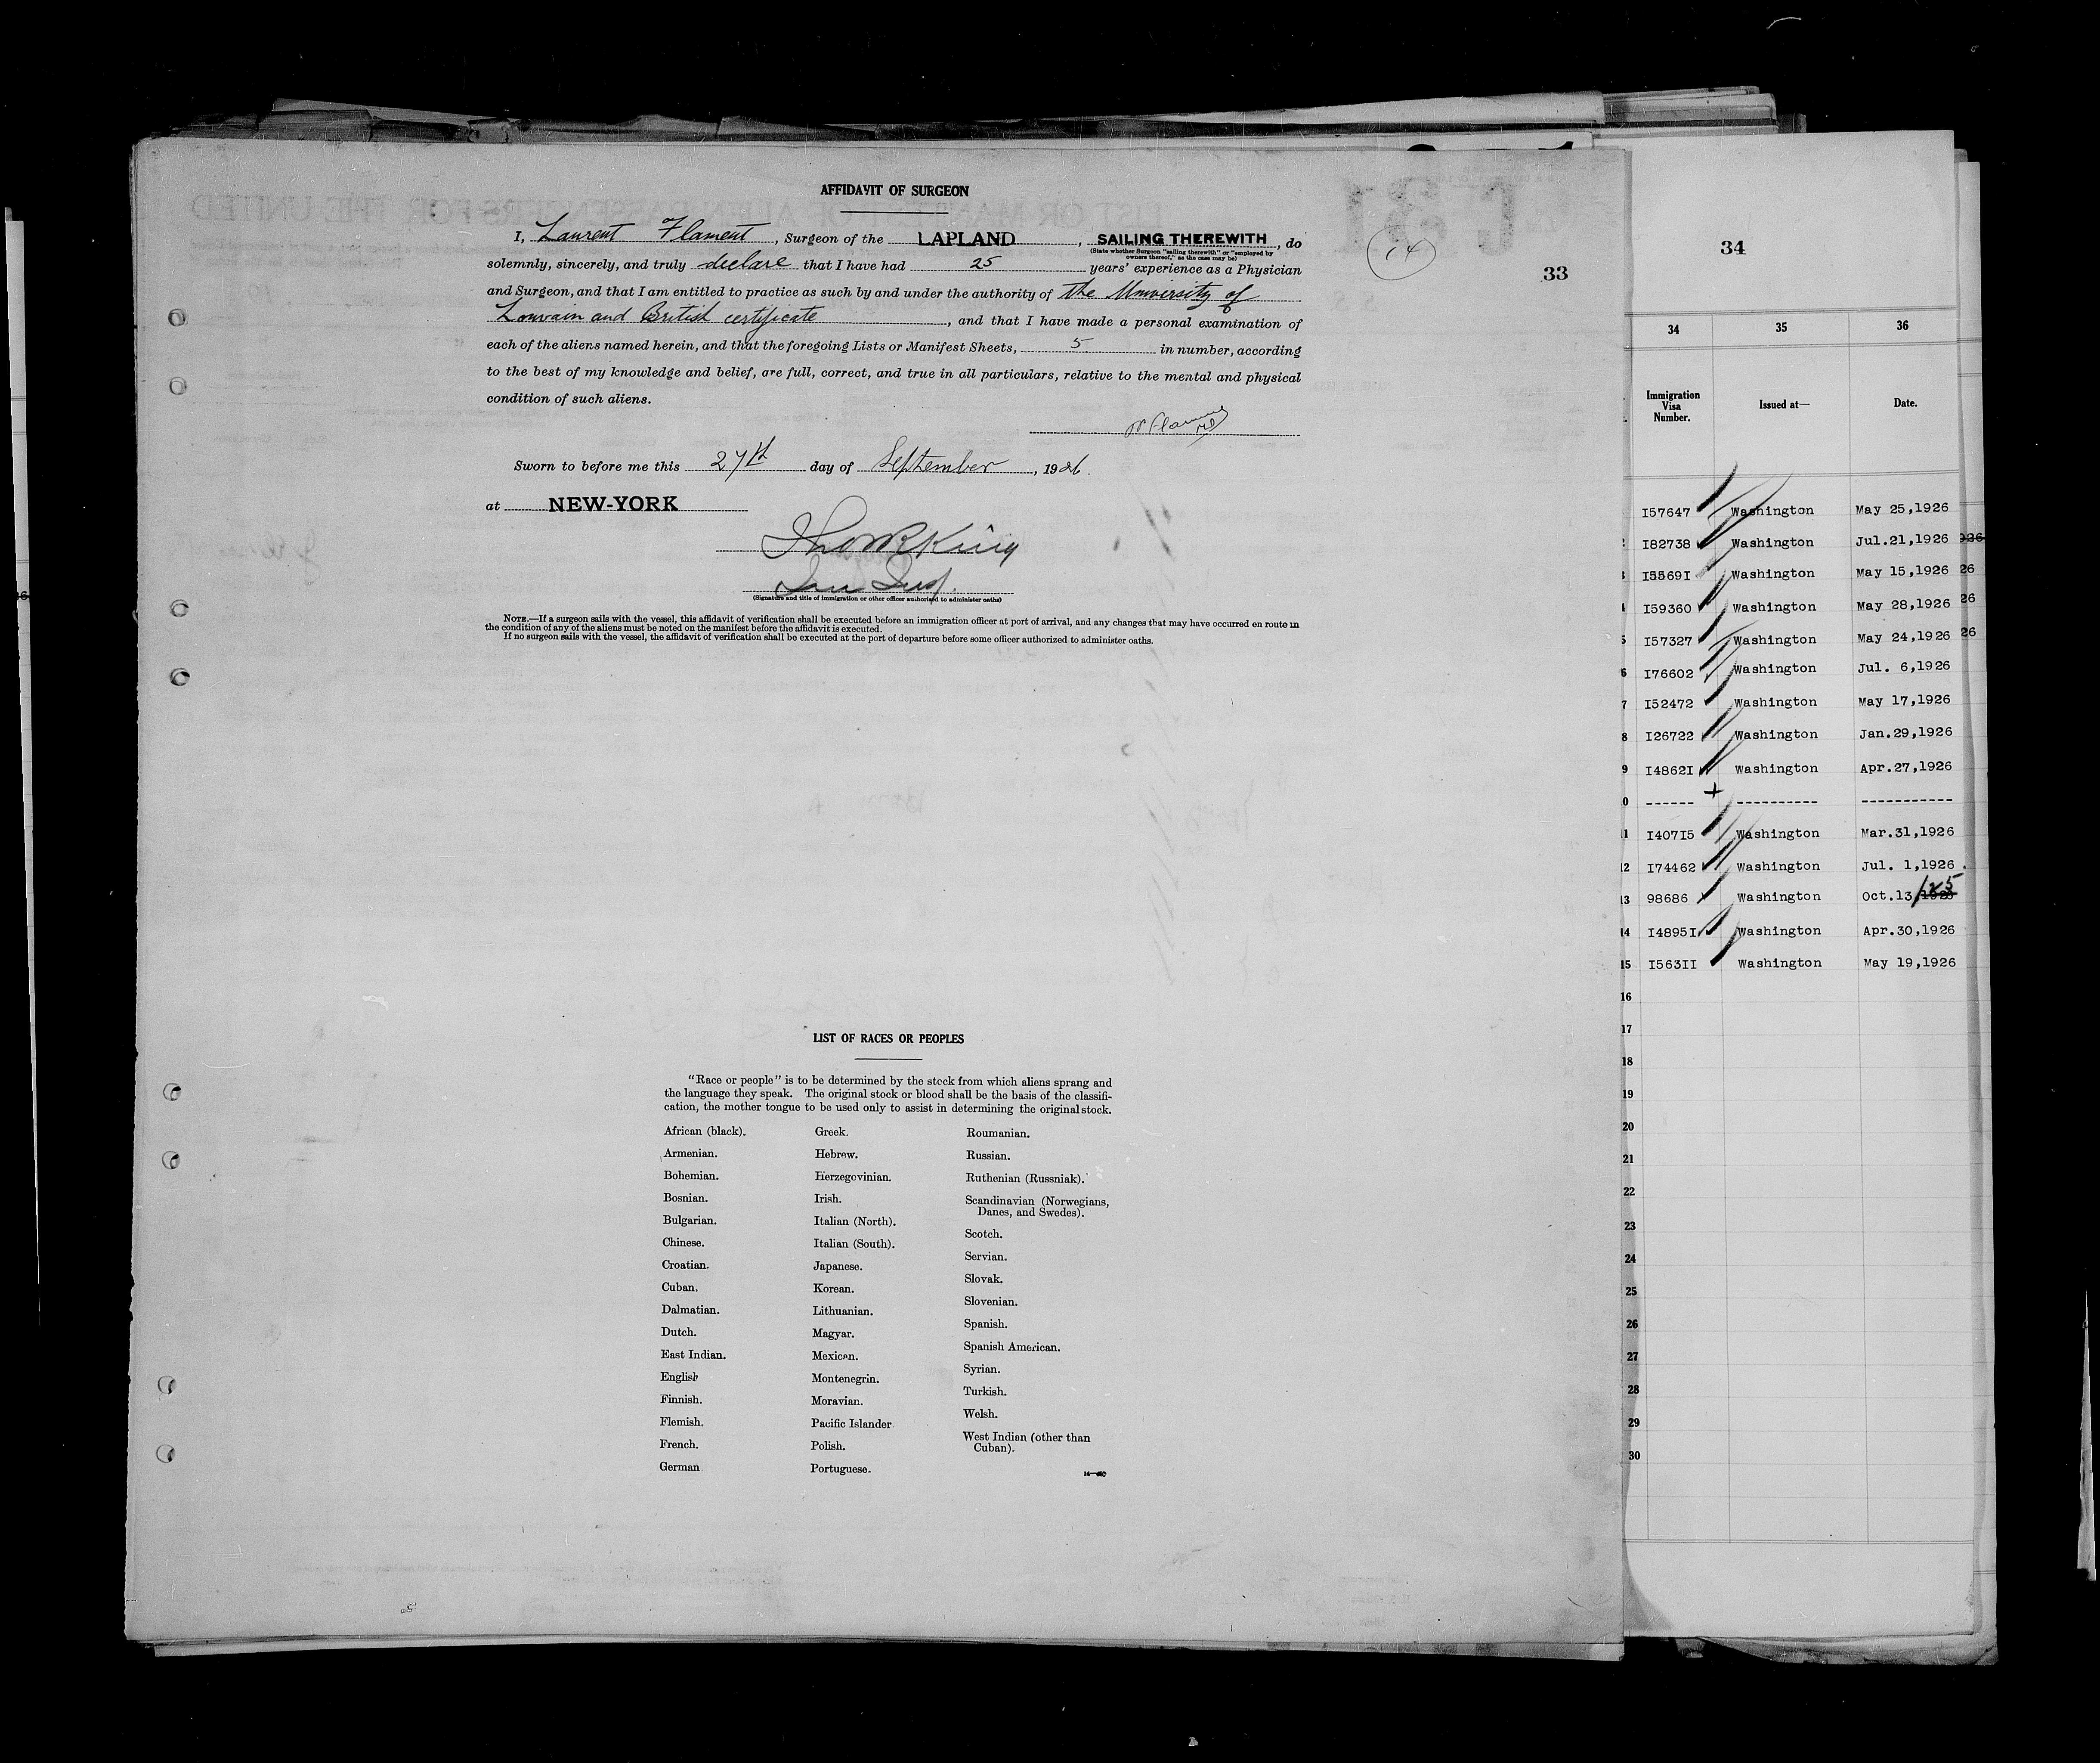 AFFIDAVIT OF SURGEON
I, Laurent Flament, Surgeon of the LAPLAND, SAILING THEREWITH, do
(State whether Surgeon "sailing therewith" or "employed by
owners thereof," as the case may be)
solemnly, sincerely, and truly declare that I have had 25 years' experience as a Physician
and Surgeon, and that I am entitled to practice as such by and under the authority of the University of
Louvain and British certificate, and that I have made a personal examination of
each of the aliens named herein, and that the foregoing Lists or Manifest Sheets, 5 in number, according
to the best of my knowledge and belief, are full, correct, and true in all particulars, relative to the mental and physical
condition of such aliens.
Sworn to before me this 27th day of September, 1926.
at NEW-YORK
(Signature and title of immigration or other officer authorized to administer oaths)
NOTE.—If a surgeon sails with the vessel, this affidavit of verification shall be executed before an immigration officer at port of arrival, and any changes that may have occurred en route in
the condition of any of the aliens must be noted on the manifest before the affidavit is executed.
If no surgeon sails with the vessel, the affidavit of verification shall be executed at the port of departure before some officer authorized to administer oaths.
(14)
33
LIST OF RACES OR PEOPLES
"Race or people" is to be determined by the stock from which aliens sprang and
the language they speak. The original stock or blood shall be the basis of the classifi-
cation, the mother tongue to be used only to assist in determining the original stock.
African (black).
Armenian.
Bohemian.
Bosnian.
Bulgarian.
Chinese.
Croatian.
Cuban.
Dalmatian.
Dutch.
East Indian.
English
Finnish.
Flemish.
French.
German
Greek.
Hebrew.
Herzegovinian.
Irish.
Italian (North).
Italian (South).
Japanese.
Korean.
Lithuanian.
Magyar.
Mexican.
Montenegrin.
Moravian.
Pacific Islander
Polish.
Portuguese.
Roumanian.
Russian.
Ruthenian (Russniak).
Scandinavian (Norwegians,
Danes, and Swedes).
Scotch.
Servian.
Slovak.
Slovenian.
Spanish.
Spanish American.
Syrian.
Turkish.
Welsh.
West Indian (other than
Cuban).
34
34 35 36
Immigration
Visa
Number.
Issued at—
Date.
I57647 Washington May 25,1926
I82738 Washington Jul.21,1926
I5569I Washington May 15,1926
I59360 Washington May 28,1926
5 I57327 Washington May 24,1926
6 I76602 Washington Jul. 6,1926
7 I52472 Washington May 17,1926
8 I26722 Washington Jan.29,1926
9 I4862I Washington Apr.27,1926
0 ------ + ---------- -----------
11 I407I5 Washington Mar.31,1926
12 I74462 Washington Jul. 1,1926
13 98686 Washington Oct.13
14 I4895I Washington Apr.30,1926
15 I563II Washington May 19,1926
16
17
18
19
20
21
22
23
24
25
26
27
28
29
30